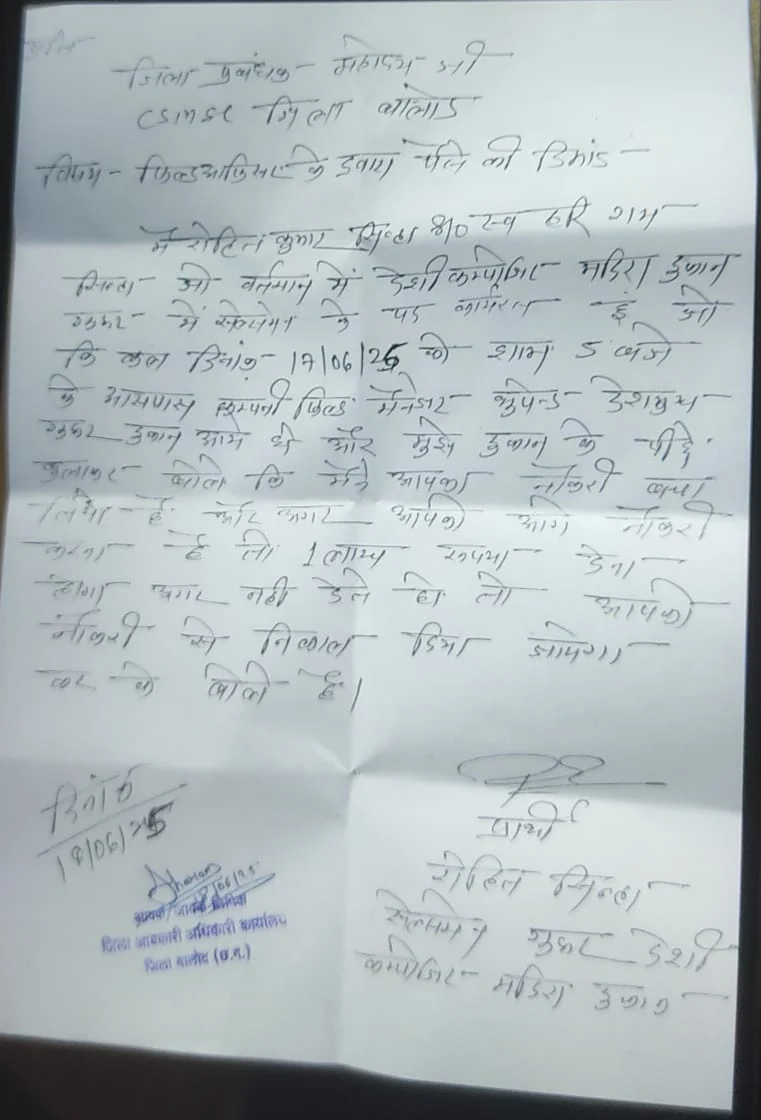 प्रति
जिला प्रबंधक महोदय जी
CSMSC जिला बालोद
विषय - फिल्डआफिसर के द्वारा पैसे की डिमांड
मैं रोहित कुमार सिन्हा S/o स्व हरि राम
सिन्हा जो वर्तमान में देशी कम्पोजिट मदिरा दुकान
गुरूर में सेल्समेन के पद कार्यरत हूं जो
कि कल दिनांक 17/06/25 को शाम 5 बजे
के आसपास कम्पनी फिल्ड मैनेजर भुपेन्द्र देशमुख
गुरूर दुकान आये थे और मुझे दुकान के पीछे
बुलाकर बोले कि मैंने आपका नौकरी बचा
लिया है और अगर आपको आगे नौकरी
करना है तो 1 लाख रूपया देना
होगा अगर नही देते हो तो आपको
नौकरी से निकाल दिया जायेगा
कर के बोले है।
दिनाँक
18/06/25
प्रार्थी
रोहित सिन्हा
सेल्समेन गुरूर देशी
कम्पोजिट मदिरा दुकान
18/06/25
जिला आबकारी अधिकारी कार्यालय
जिला बालोद (छ.ग.)